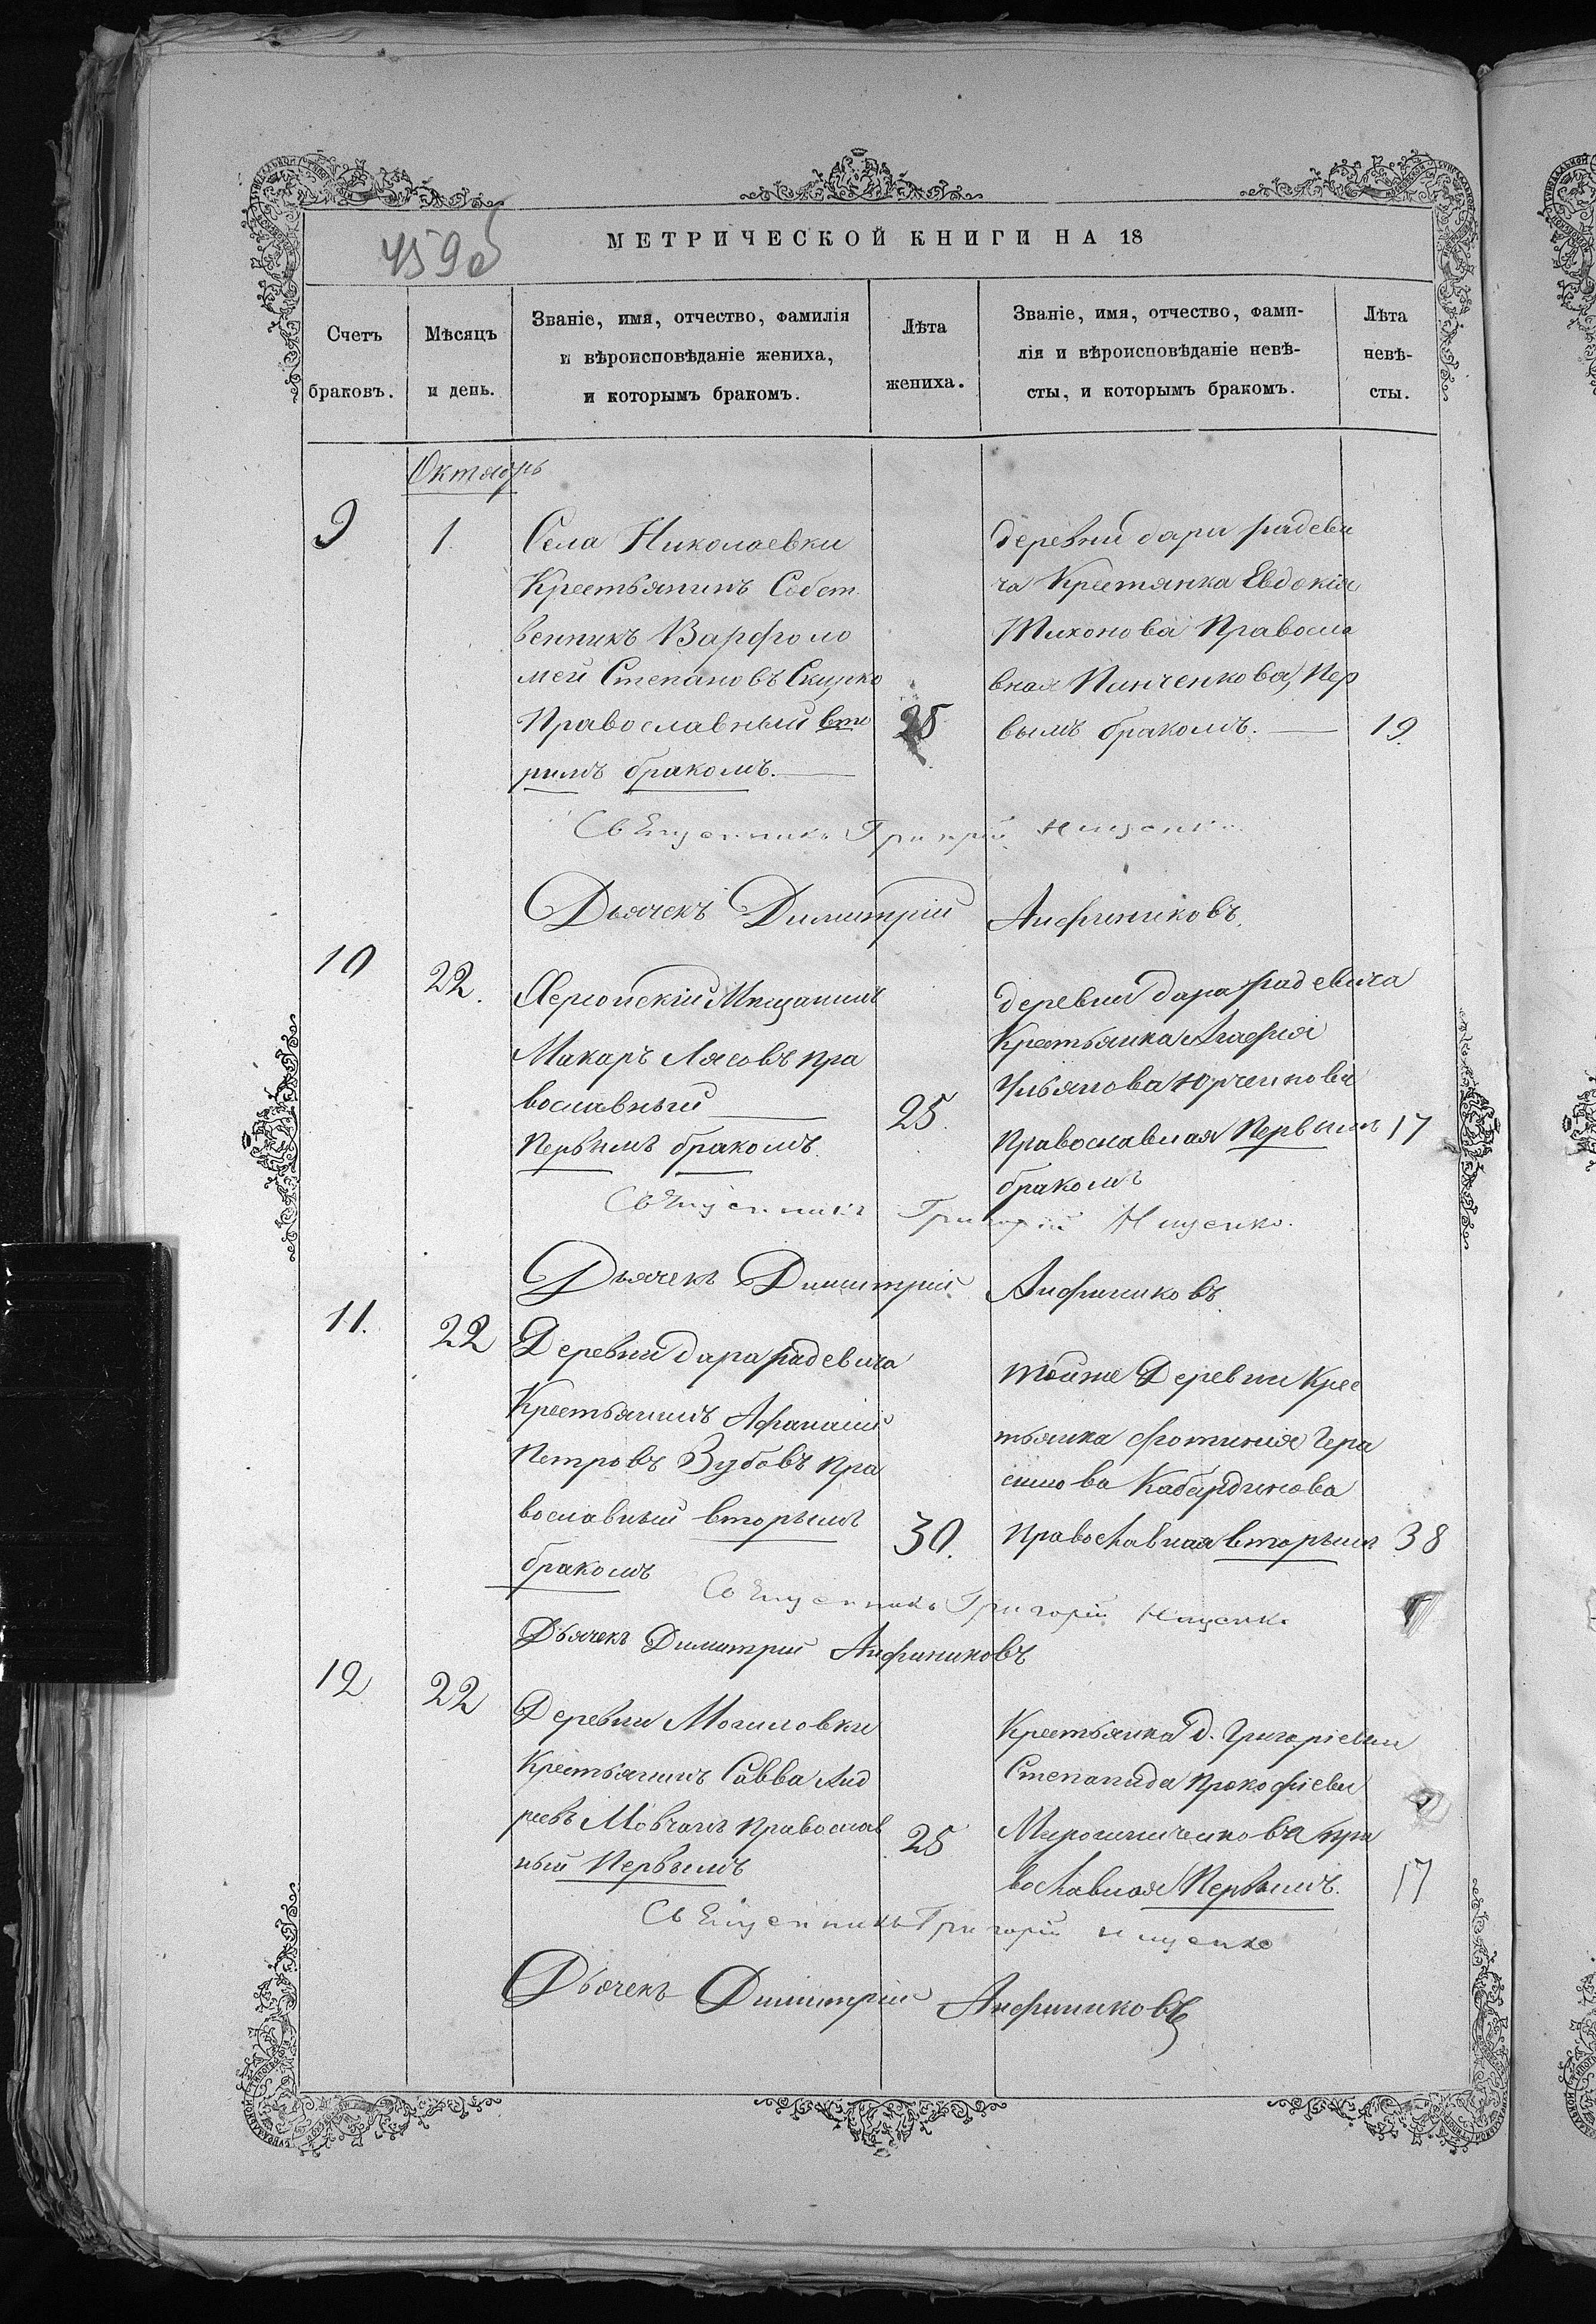 459об
МЕТРИЧЕСКОЙ КНИГИ НА 18
Счетъ браковъ.
Мѣсяцъ и день.
Званіе, имя, отчество, фамилія
и вѣроисповѣданіе жениха,
и которымъ бракомъ.
Лѣта жениха.
Званіе, имя, отчество, фами-
лія и вѣроисповѣданіе невѣ-
сты, и которымъ бракомъ.
Лѣта невѣ-
сты.
Октябрь
9
1.
Села Николаевки
Крестьянинъ Собст
венникъ Варфоло
мей Степановъ
Православный вто
рымъ бракомъ.
25
деревни дара
ча Крестянка Евдокія
Тихонова Правосла
вная Пинченкова, Пер
вымъ бракомъ.
19.
Священникъ Григорій Нищенко
Дьячекъ Димитрій Анфиниковъ.
10
22.
Херсонскій Мѣщанинъ
Макаръ Лясовъ пра
вославный
Первымъ бракомъ.
25.
деревни дара
Крестьянка Агафія
Ульянова Юрченкова
Православная Первымъ
бракомъ
17
Священникъ Григорій Нищенко.
Дьячекъ Димитрій Анфиниковъ.
11.
22
Деревни дара
Крестьянинъ Афанасій
Петровъ Зубовъ пра
вославный вторымъ
бракомъ
30.
тойже Деревни Крес
тьянка Фотинія Гера
симова Кабардинова
православная вторымъ
38
Священникъ Григорій Нищенко
Дьячекъ Димитрій Анфиниковъ
12
22
Деревни Могиловки
Крестьянинъ Савва Анд
реевъ Мовчанъ православ
ный Первымъ
25
Крестьянка д. Григоріевки
Степанида Прокофіева
Мирошниченкова пра
вославная Первымъ.
17
Священникъ Григорій Нищенко
Дьячекъ Димитрій Анфиниковъ